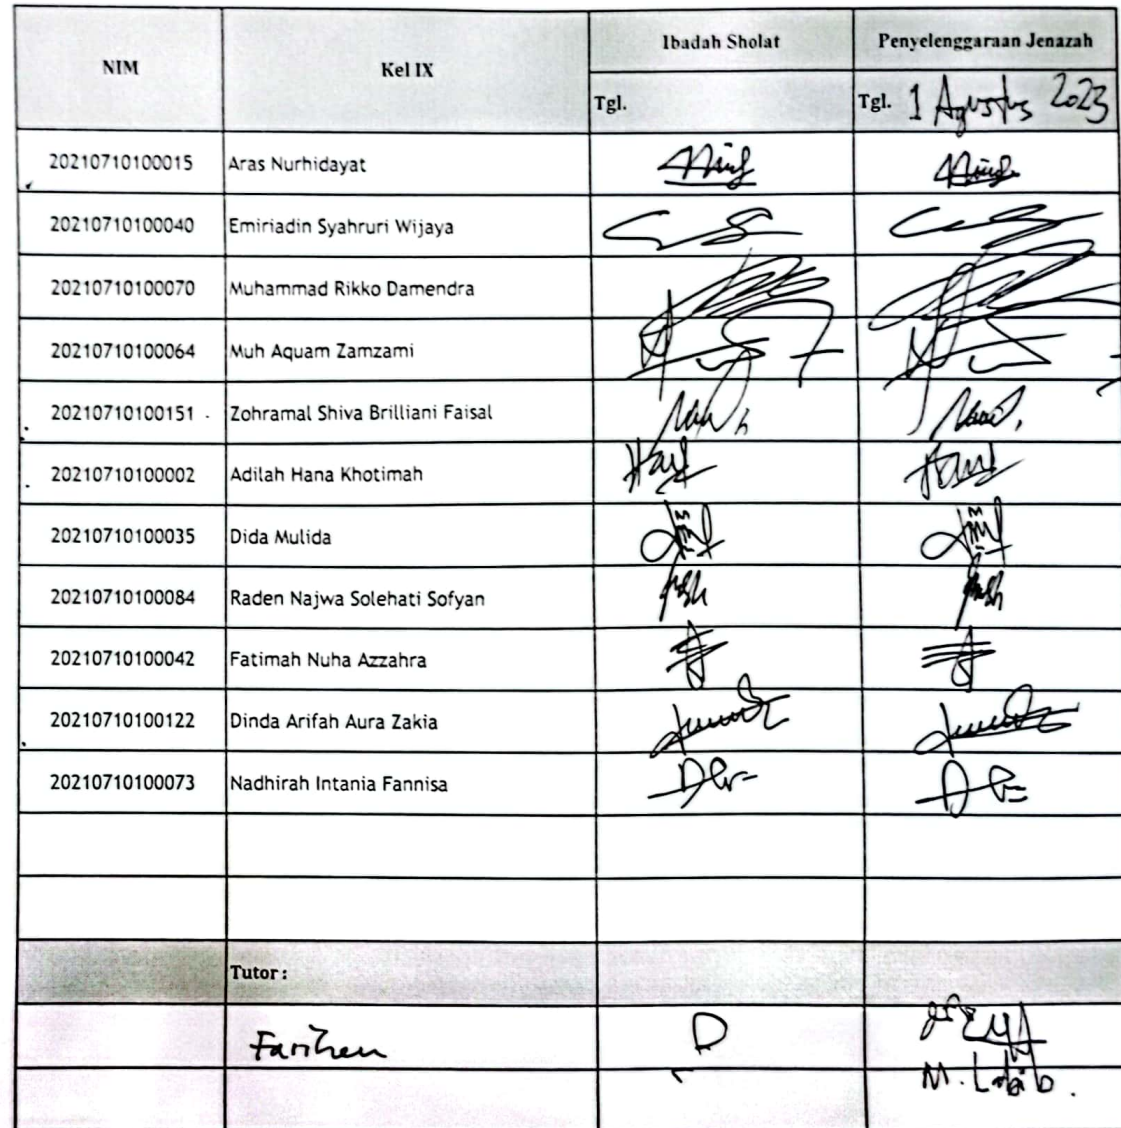 NIM Kel IX Ibadah Sholat Penyelenggaraan Jenazah
Tgl. Tgl. 1 Agustus 2023
20210710100015 Aras Nurhidayat
20210710100040 Emiriadin Syahruri Wijaya
20210710100070 Muhammad Rikko Damendra
20210710100064 Muh Aquam Zamzami
20210710100151 Zohramal Shiva Brilliani Faisal
20210710100002 Adilah Hana Khotimah
20210710100035 Dida Mulida
20210710100084 Raden Najwa Solehati Sofyan
20210710100042 Fatimah Nuha Azzahra
20210710100122 Dinda Arifah Aura Zakia
20210710100073 Nadhirah Intania Fannisa
Tutor :
Farihen
M. Labib.